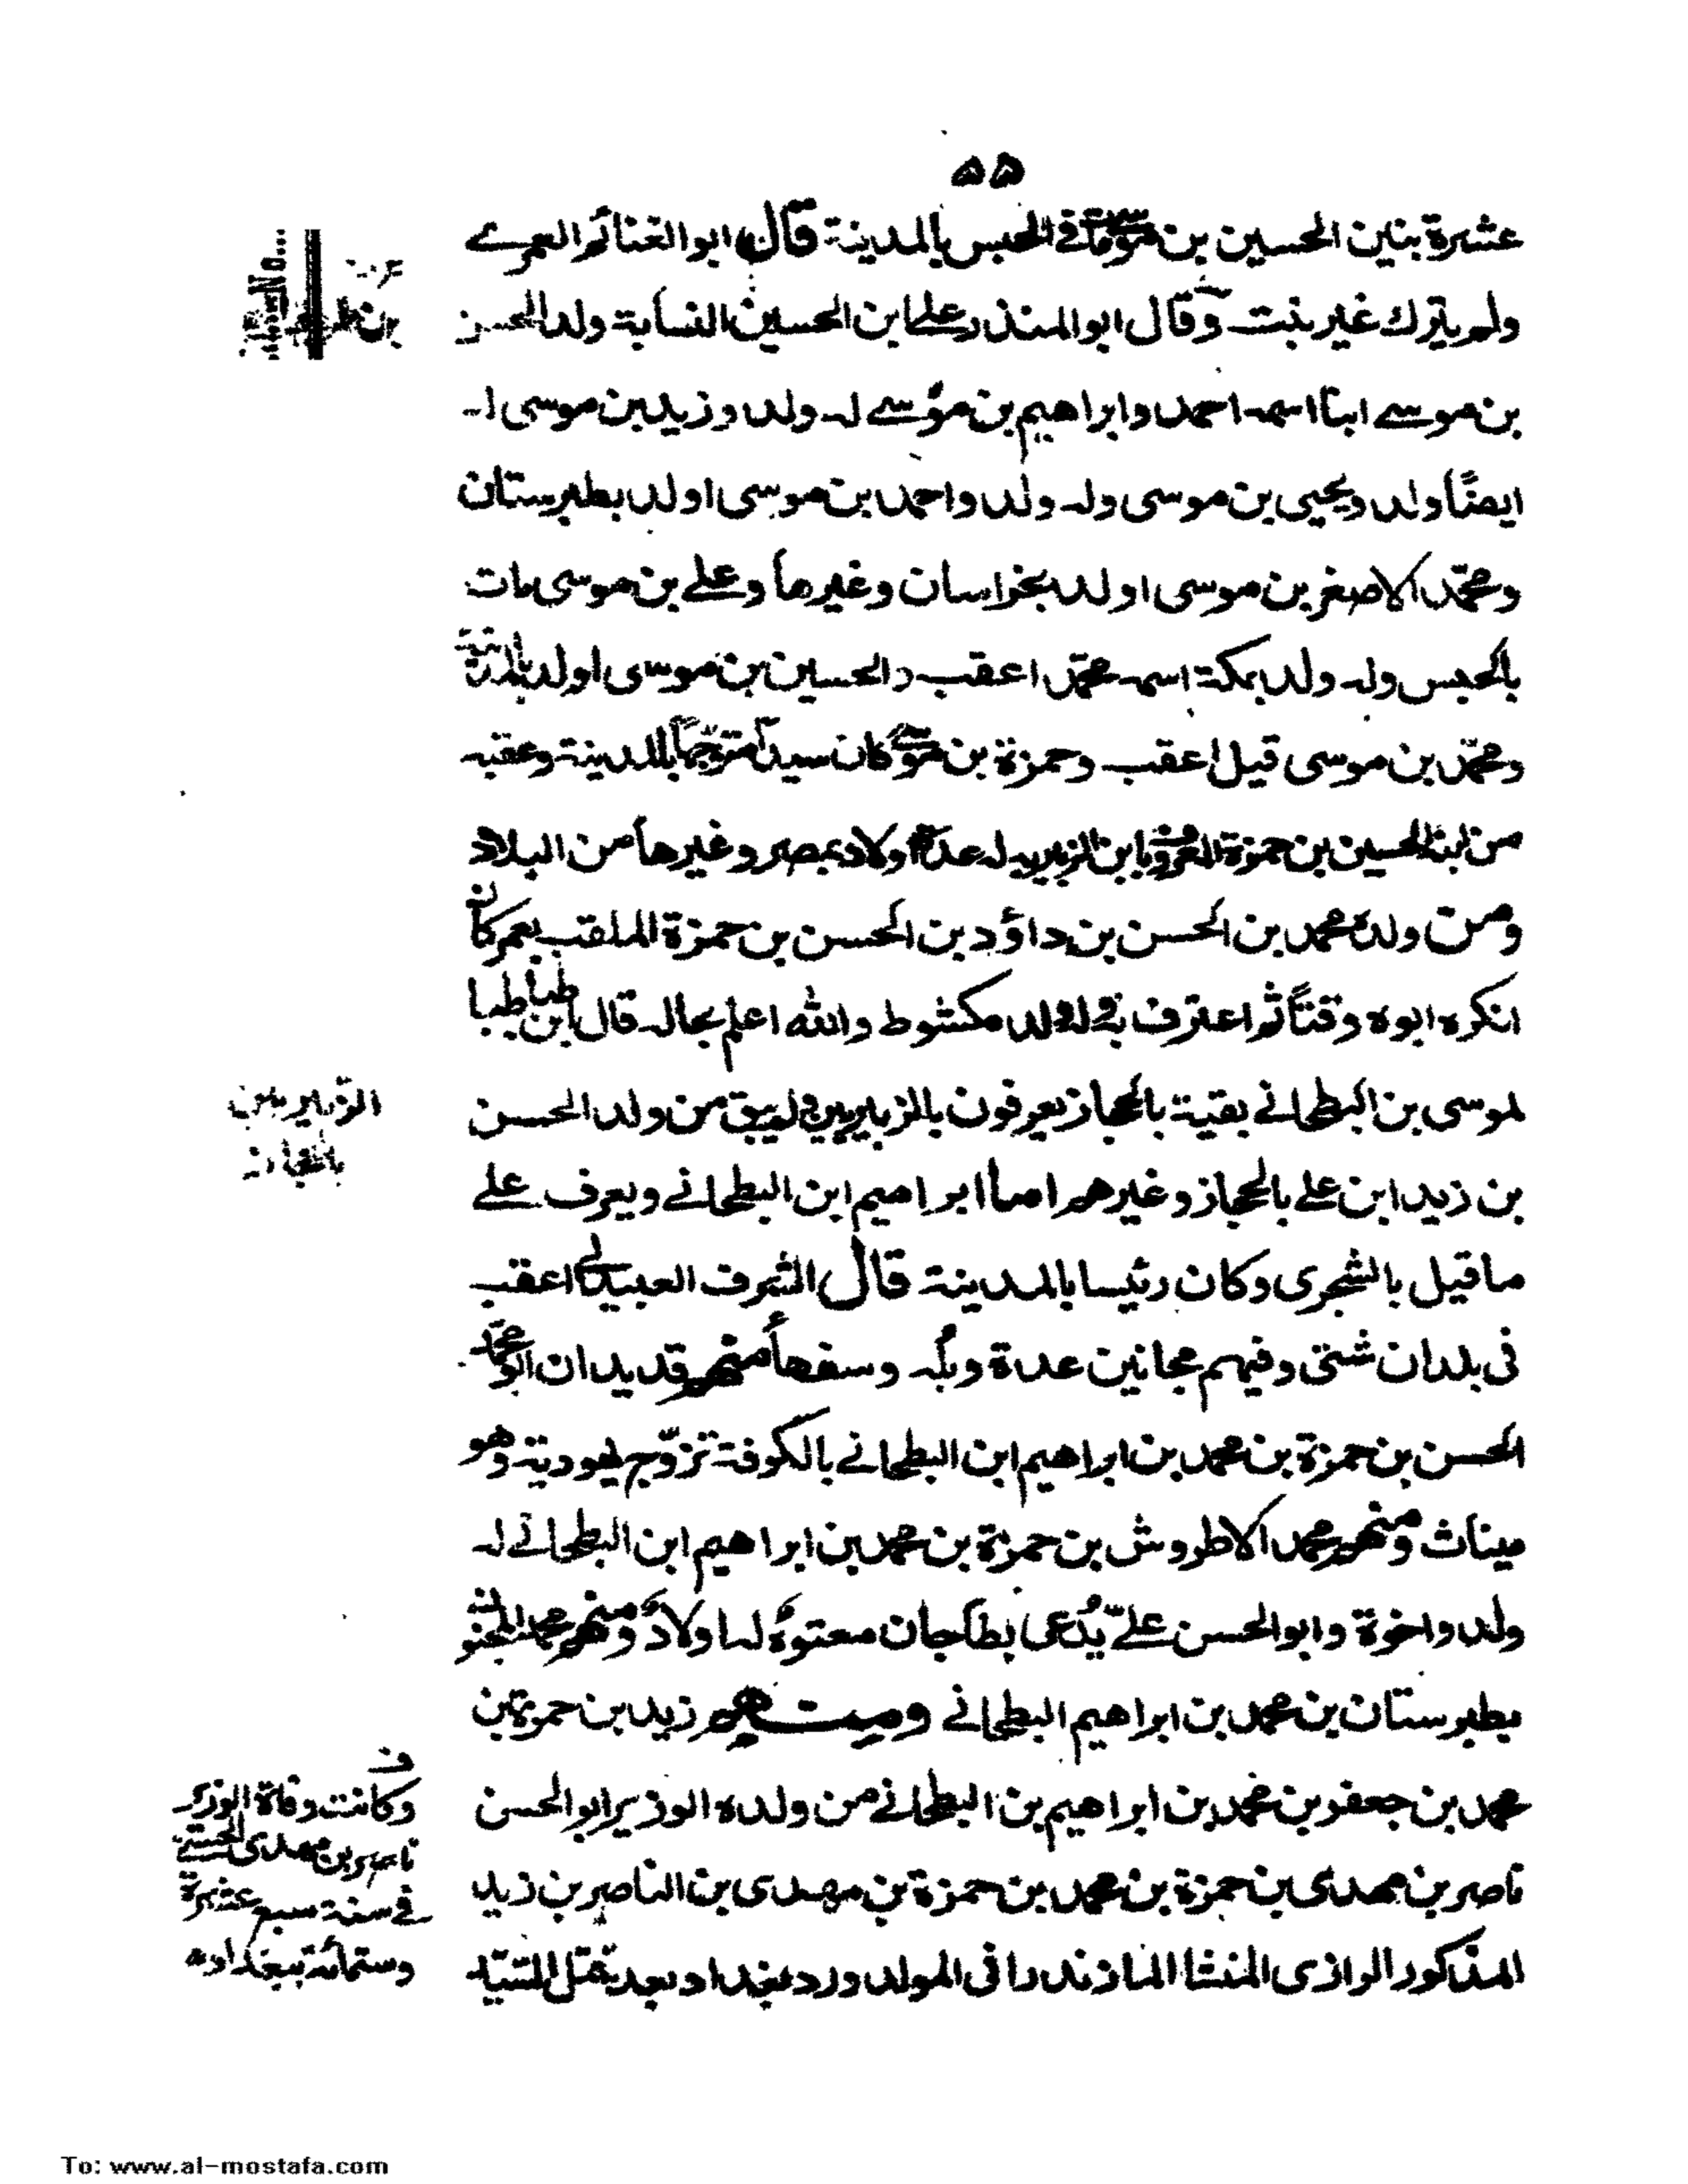 ۵۵
عشرة بنين الحسين بن موسى مات في الحبس بالمدينة قال ابو الغنائم العمرے
ولم يترك غير بنت وقال ابو المنذر علے ابن الحسين النسابة ولد الحسن
بن موسے ابنا اسمه احمد وابراهيم بن موسے له ولد وزيد بن موسى له
ايضًا ولد ويحيى بن موسى وله ولد واحمد بن موسى اولد بطبرستان
ومحمّد الاصغر بن موسى اولد بخراسان وغيرها وعلے بن موسى مات
بالحبس وله ولد بمكة اسمه محمّد اعقب والحسين بن موسى اولد بالمدينة
ومحمّد بن موسى قيل اعقب وحمزة بن موسے كان سيدًا متوجهًا بالمدينة وعقبه
من ابنه الحسين بن حمزة المعروف بابن الزبيريه له عدة اولاد بمصر وغيرها من البلاد
ومن ولده محمد بن الحسن بن داؤد بن الحسن بن حمزة الملقب بعمر كان
انكره ابوه وقتًا ثم اعترف به وله ولد مكشوط والله اعلم بحاله قال ابن طباطبا
لموسى بن البطحانے بقية بالحجاز يعرفون بالزبيريين ولم يبق من ولد الحسن
بن زيد ابن علے بالحجاز وغيرهم اما ابراهيم ابن البطحانے ويعرف علے
ما قيل بالشجرى وكان رئيسا بالمدينة قال الشرف العبيدلے اعقب
فى بلدان شتى وفيهم مجانين عدة وبُله وسفهأ منهم قديدان ابو محمّد
الحسن بن حمزة بن محمد بن ابراهيم ابن البطحانے بالكوفة تزوّج يهودية وهو
ميناث ومنهم محمد الاطروش بن حمزة بن محمد بن ابراهيم ابن البطحانے له
ولد واخوة وابو الحسن علےّ يُدعى بطاجان معتوهٌ له اولادٌ ومنهم محمد المجنون
بطبرستان بن محمد بن ابراهيم البطحانے ومنهم زيد بن حمزة بن
محمد بن جعفر بن محمد بن ابراهيم بن البطحانے من ولده الوزير ابو الحسن
ناصر بن مهدى بن حمزة بن محمد بن حمزة بن مهدى بن الناصر بن زيد
المذكور الرازى المنشا المازندرانى المولد ورد بغداد بعد قتل السيد
بن
الزبيريين
بالحجاز
ف
وكانت وفاة الوزير
ناصر بن مهدى الحسنے
فے سنة سبع عشرة
وستمائة ببغداد
To: www.al-mostafa.com